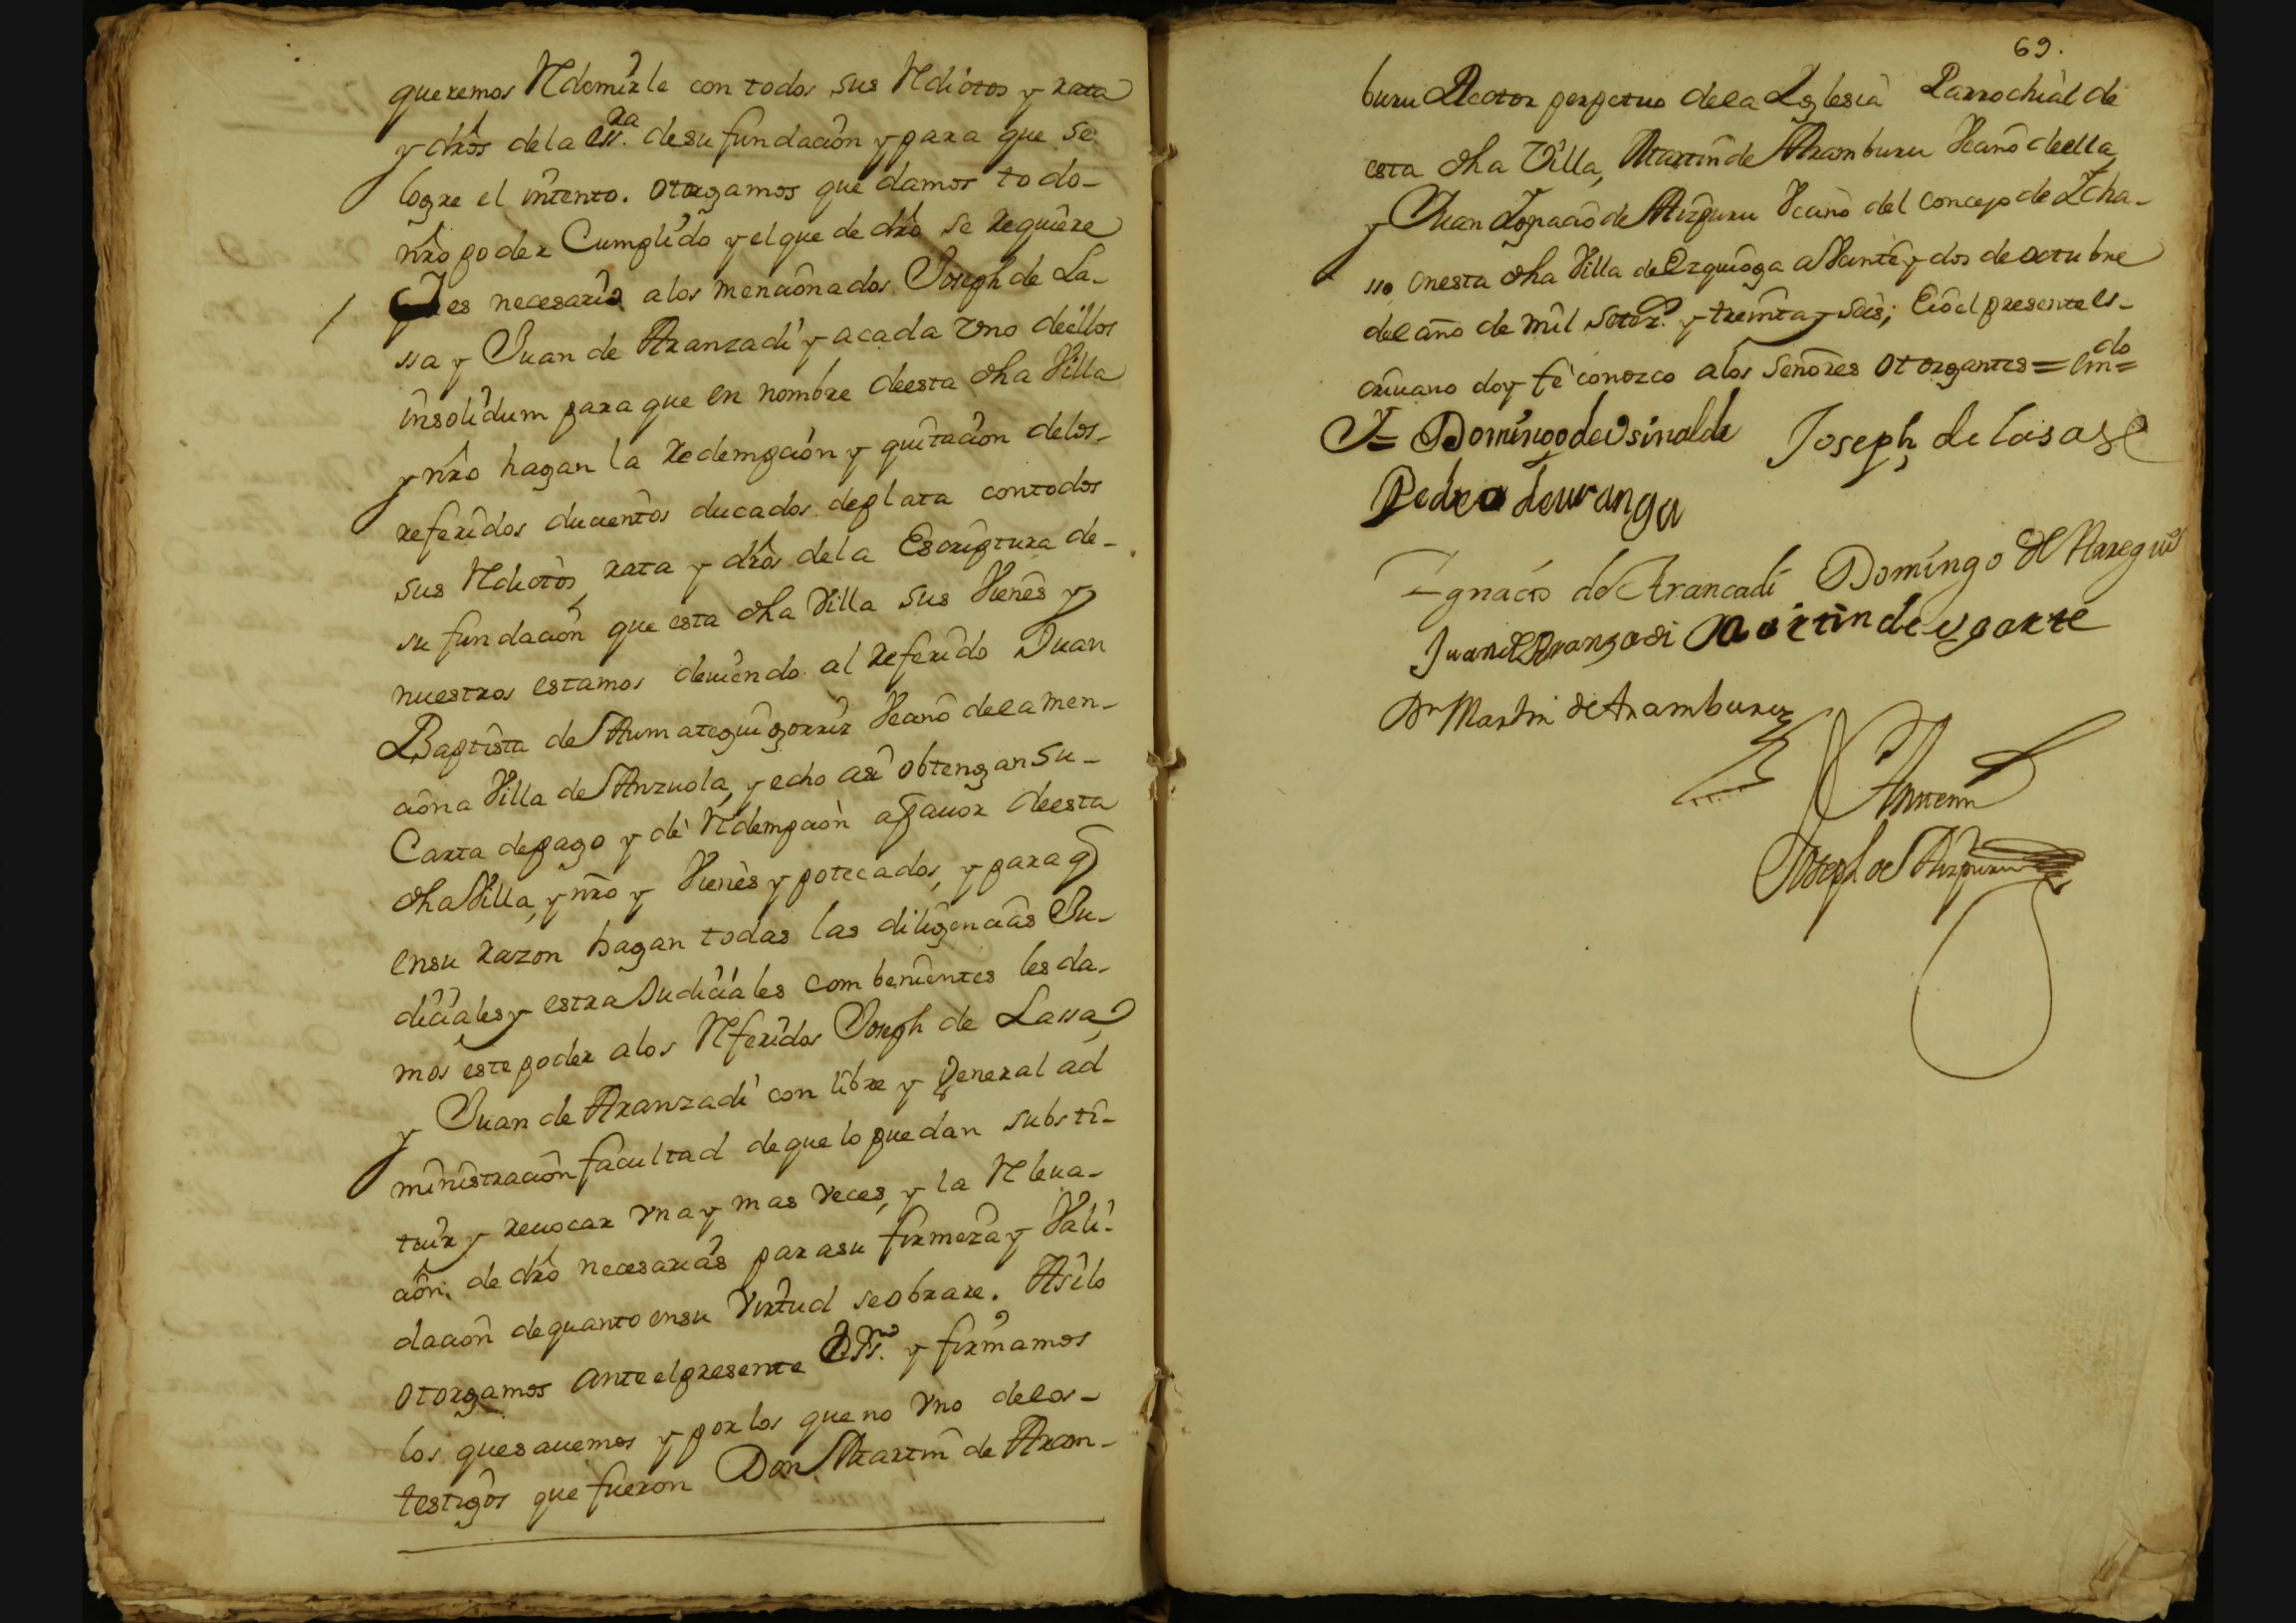 queremos Redemirle con todos sus Reditos y rata
y dros de la essra. de su fundacion y para que se
logre el intento. otorgamos que damos todo-
nro poder Cumplido y el que de dro se requiere
y es necesario a los mencionados Joseph de La-
ssa y Juan de Aranzadi y a cada Uno de ellos
insolidum para que en nombre de esta dha Villa
y nro hagan la redempcion y quitacion de los-
referidos ducientos ducados de plata con todos
sus Reditos, rata y dros de la Escriptura de-
su fundacion que esta dha Villa sus Vienes y
nuestros estamos deviendo al referido Juan
Baptista de Aumategui gorrir Vecino de la men-
ciona Villa de Anzuola, y echo asi obtengan su-
Carta de pago y de Redempcion a favor de esta
dha Villa, y nro y Vienes ypotecados, y para q
en su razon hagan todas las diligencias Ju-
diciales y estra Judiciales combenientes les da-
mos este poder a los Referidos Joseph de Lassa,
y Juan de Aranzadi con libre y General ad
ministracion facultad de que lo puedan substi-
tuir y revocar vna y mas veces, y la Releva-
cion de dro necesarias para su firmeza y Vali-
dacion de quanto en su virtud se obrare. Asi lo
otorgamos ante el presente ess.no y firmamos
los que savemos y por los que no vno de los-
testigos que fueron Don Martin de Aram-
69.
buru Rector perpetuo de la Yglesia Parrochial de
esta dha Villa, Martin de Aramburu Vecino de ella,
y Juan Ygnacio de Aizpuru Vecino del concejo de Ycha-
sso en esta dha Villa de Ezquioga a Veinte y dos de octubre
del año de mil setez.s y treinta y seis; E io el presente es-
crivano doy fe conozco a los señores otorgantes = em.do =
Y = Domingo de Usinalde Joseph de Lasa
Pedro de uranga
Ygnacio de Arancadi Domingo de Arregui
Juan de Aranzadi Martin de Ugarte
Dn Martin de Aramburu
Ante mi
Joseph de Aizpuru